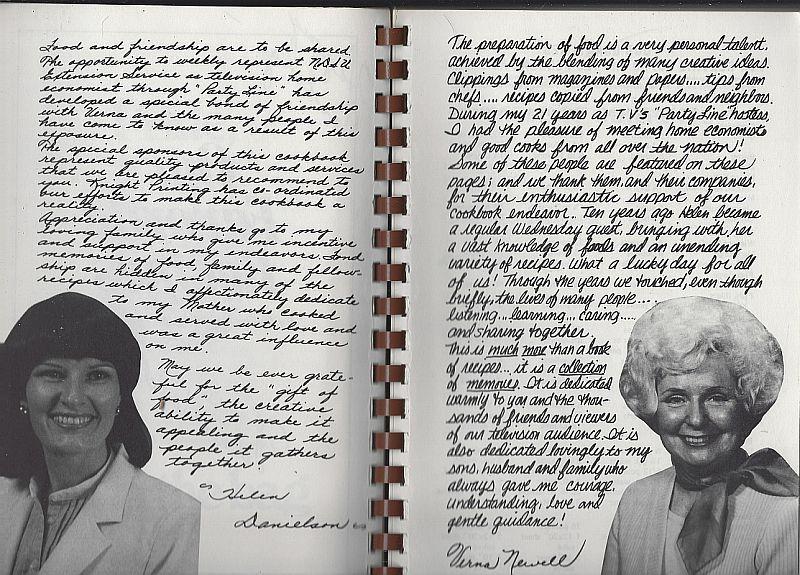 Food and friendship are to be shared.
The opportunity to weekly represent NDSU
Extension Service as television home
economist through "Party Line" has
developed a special bond of friendship
with Verna and the many people I
have come to know as a result of this
exposure.
The special sponsors of this cookbook
represent quality products and services
that we are pleased to recommend to
you. Knight Printing has co-ordinated
our efforts to make this cookbook a
reality.
Appreciation and thanks go to my
loving family who give me incentive
and support in my endeavors. Fond
memories of food, family and fellow-
ship are hidden in many of the
recipes which I affectionately dedicate
to my Mother who cooked
and served with love and
was a great influence
on me.
May we be ever grate-
ful for the "gift of
food", the creative
ability to make it
appealing and the
people it gathers
together.
Helen
Danielson
The preparation of food is a very personal talent,
achieved by the blending of many creative ideas.
Clippings from magazines and papers.... tips from
chefs.... recipes copied from friends and neighbors.
During my 21 years as T.V.'s "Party Line" hostess,
I had the pleasure of meeting home economists
and good cooks from all over the nation!
Some of these people are featured on these
pages; and we thank them, and their companies,
for their enthusiastic support of our
cookbook endeavor. Ten years ago Helen became
a regular Wednesday guest, bringing with her
a vast knowledge of foods and an unending
variety of recipes. What a lucky day for all
of us! Through the years we touched, even though
briefly, the lives of many people....
listening... learning... caring....
and sharing together.
This is much more than a book
of recipes... it is a collection
of memories. It is dedicated
warmly to you and the thou-
sands of friends and viewers
of our television audience. It is
also dedicated lovingly to my
sons, husband and family who
always gave me courage,
understanding, love and
gentle guidance!
Verna Newell